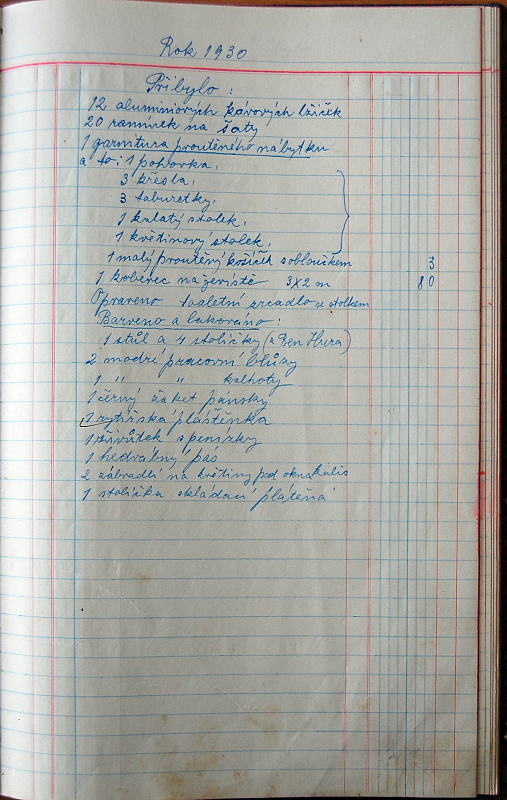 Rok 1930
Přibylo :
12 aluminiových kávových lžiček
20 ramínek na šaty
1 garnitura proutěného nábytku
a to: 1 pohovka,
3 křesla,
3 taburetky,
1 kulatý stolek,
1 květinový stolek,
1 malý proutěný košíček s obloučkem 3
1 koberec na jeviště 3x2 m 80
Opraveno toaletní zrcadlo se stolkem
Barveno a lakováno :
1 stůl a 4 stoličky (z Ben Hura)
2 modré pracovní blůzy
1 " " kalhoty
1 černý žaket pánský
1 rytířská pláštěnka
1 živůtek s penízky
1 hedvábný pás
2 zábradlí na květiny pod okna kulis
1 stolička skládací plátěná